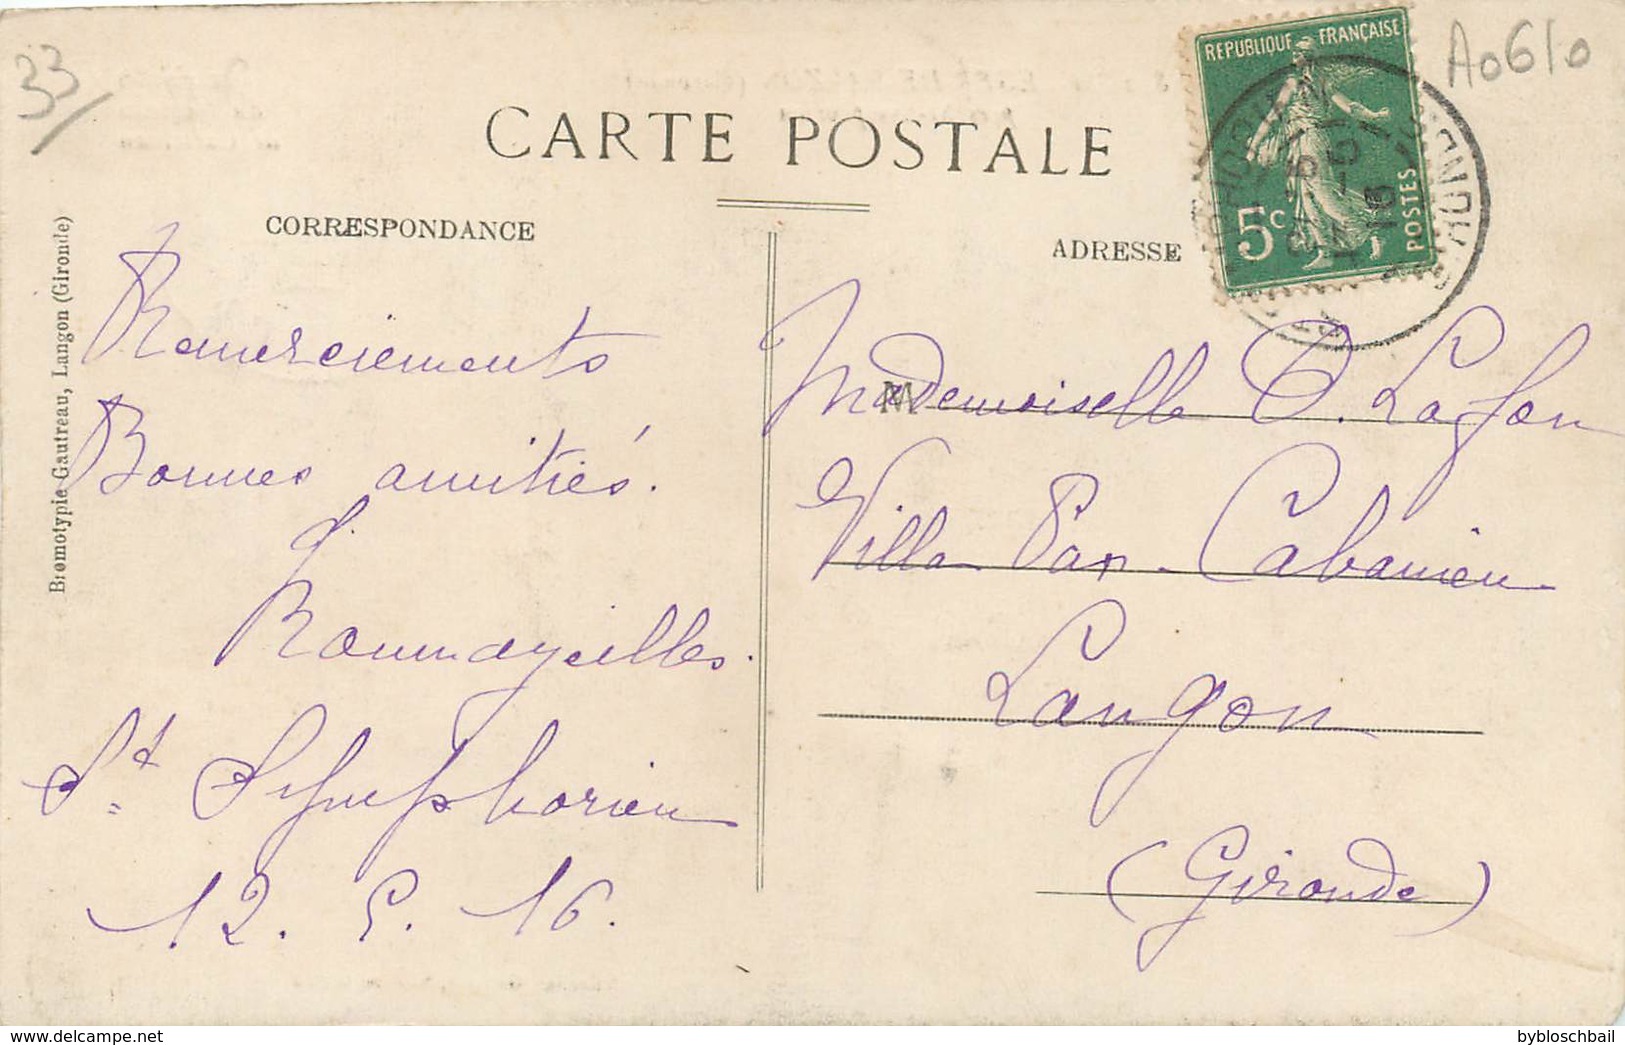 33
A0610
REPUBLIQUE FRANÇAISE
5c
POSTES
CARTE POSTALE
CORRESPONDANCE
ADRESSE
Bromotypie Gautreau, Langon (Gironde)
Remerciements
Bonnes amitiés.
St Symphorien
12. 5. 16.
M
Mademoiselle O. Lafon
Villa Pan-Cabanieu
Langon
(Gironde)
bybloschbail